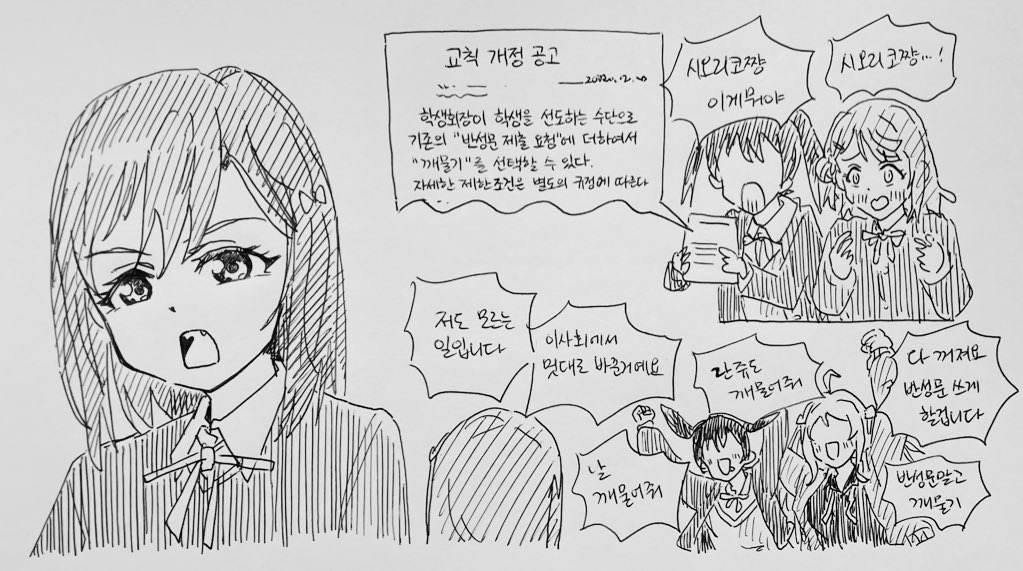 교칙 개정 공고
학생회장이 학생을 선도하는 수단으로
기존의 "반성문 제출 요청"에 더하여서
"깨물기"를 선택할 수 있다.
자세한 제한조건은 별도의 규정에 따른다
시오리코쨩
이게뭐야
시오리코쨩...!
저도 모르는
일입니다
이사회에서
멋대로 바꾼거예요
란쥬도
깨물어줘
날
깨물어줘
다 꺼져요
반성문 쓰게
할겁니다
반성문말고
깨물기